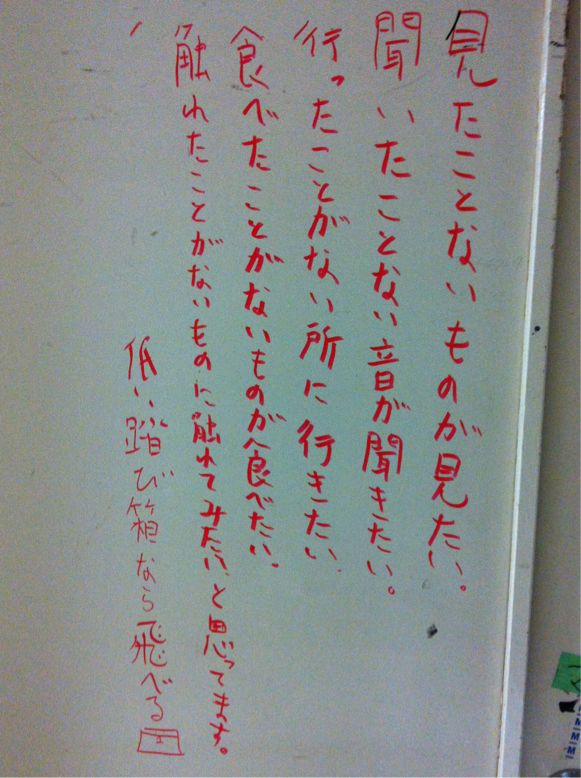 見たことないものが見たい。
聞いたことない音が聞きたい。
行ったことがない所に行きたい
食べたことがないものが食べたい。
触れたことがないものに触れてみたい、と思ってます。
低い踏び箱なら飛べる